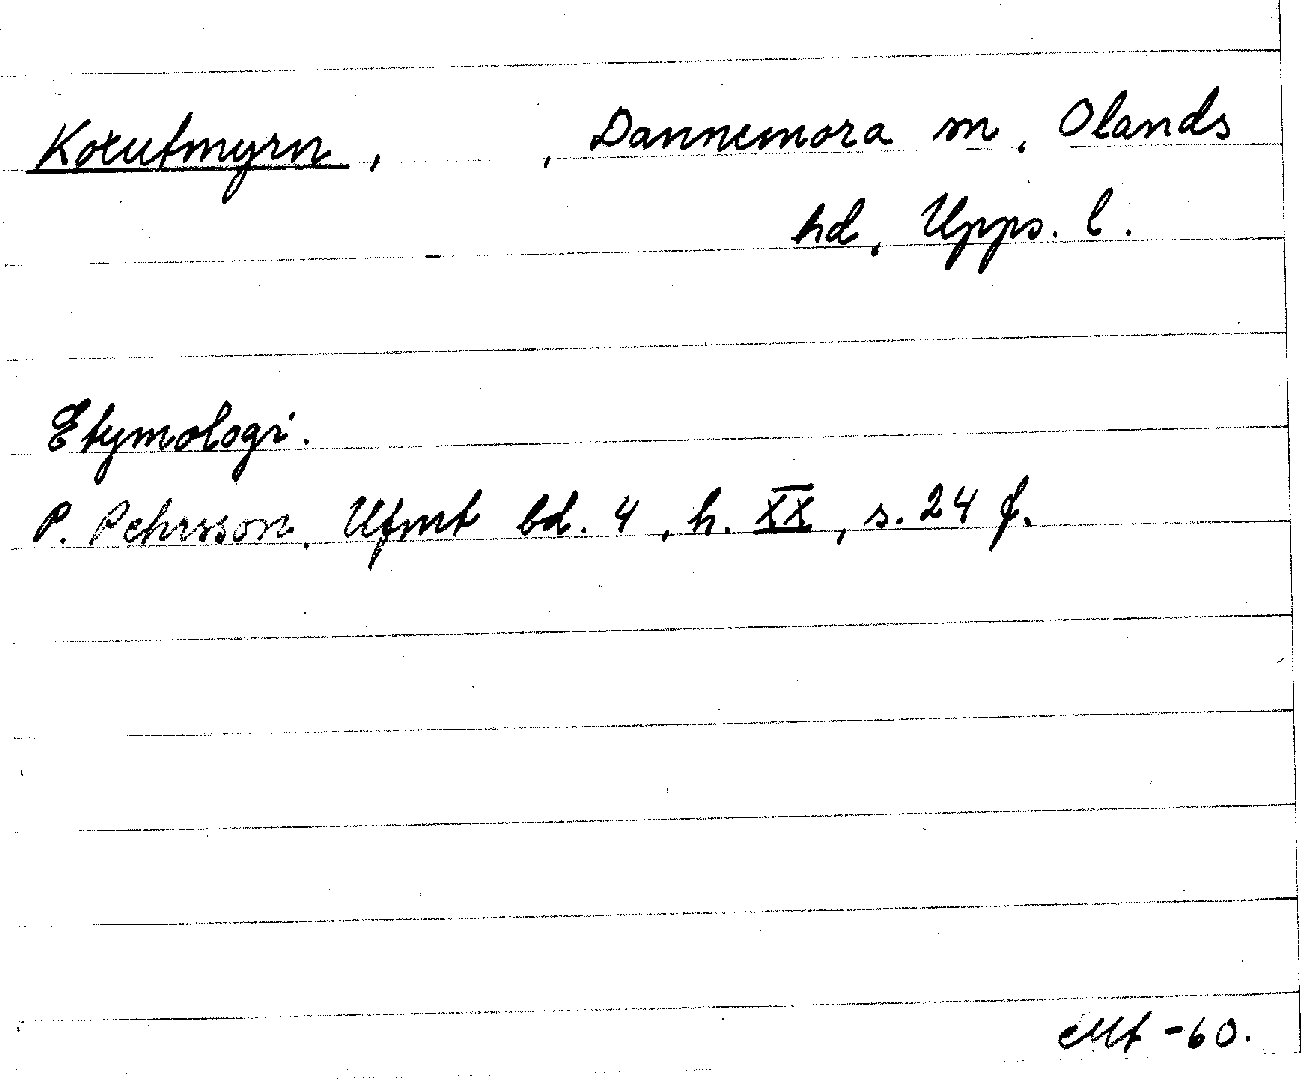 Kołutmyrn, , Dannemora sn, Olands
hd, Upps. l.
Etymologi.
P. Pehrsson, Ufmt bd. 4, h. XX, s. 24 f.
Mt -60.